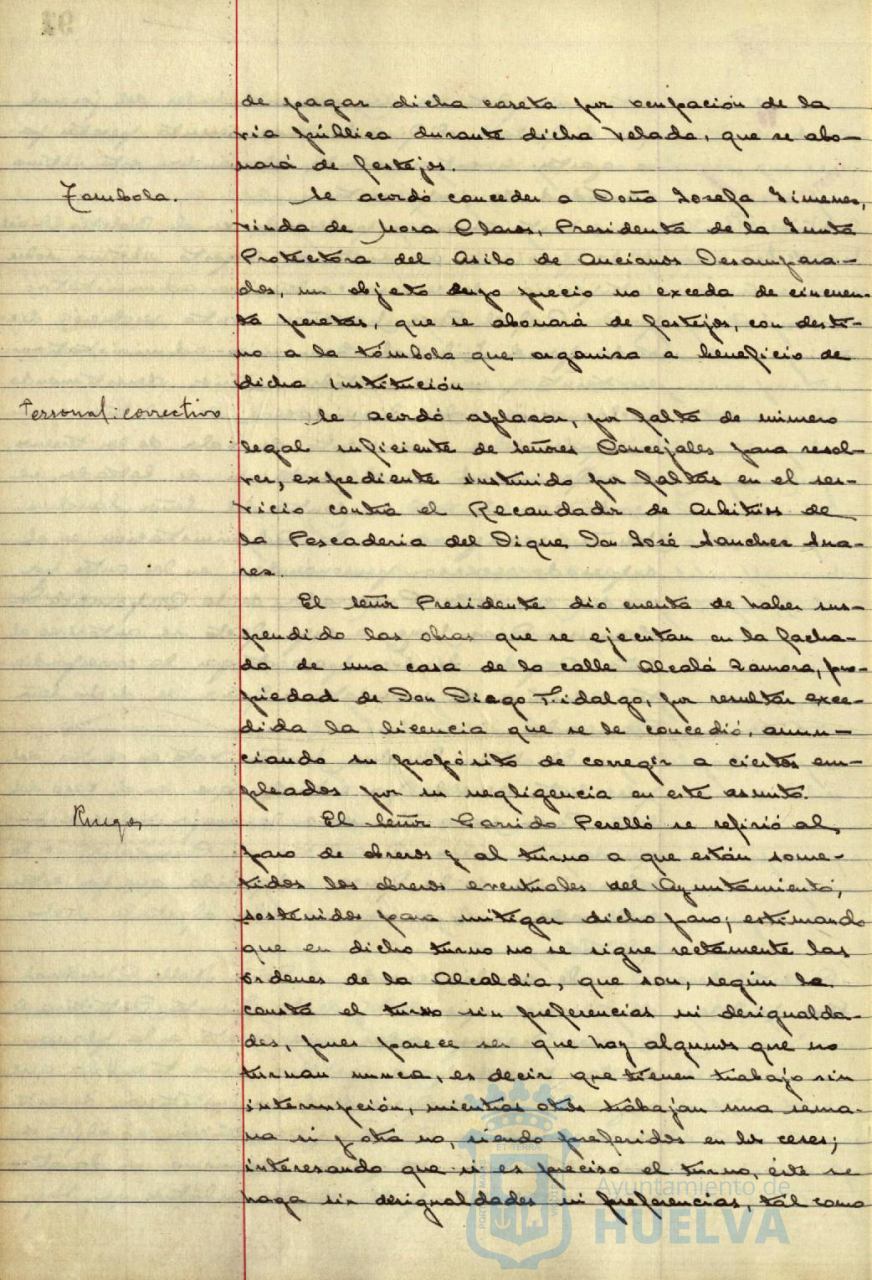 de pagar dicha caseta por ocupación de la
vía pública durante dicha velada, que se abo-
nará de festejos.
Tómbola.
Se acordó conceder a Doña Josefa Jimenez,
viuda de Mora Claros, Presidenta de la Junta
Protectora del Asilo de Ancianos Desampara-
dos, un objeto cuyo precio no exceda de cincuen-
ta pesetas, que se abonará de festejos, con desti-
no a la tómbola que organiza a beneficio de
dicha Institución
Personal: correctivo
Se acordó aplazar, por falta de número
legal suficiente de señores Concejales para resol-
ver, expediente instruido por faltas en el ser-
vicio contra el Recaudador de Arbitrios de
la Pescadería del Dique, Don José Sanchez Sua-
rez.
El señor Presidente dio cuenta de haber sus-
pendido las obras que se ejecutan en la facha-
da de una casa de la calle Alcalá Zamora, pro-
piedad de Don Diego Fidalgo, por resultar exce-
dida la licencia que se le concedió, anun-
ciando su propósito de corregir a ciertos em-
pleados por su negligencia en este asunto.
Ruegos
El señor Garrido Perelló se refirió al
paro de obreros y al turno a que están some-
tidos los obreros eventuales del Ayuntamiento,
sostenidos para mitigar dicho paro; estimando
que en dicho turno no se sigue rectamente las
órdenes de la Alcaldía, que son, según le
consta el turno sin preferencias ni desigualda-
des, pues parece ser que hay algunos que no
turnan nunca, es decir que tienen trabajo sin
interrupción, mientras otros trabajan una sema-
na si y otra no, siendo preferidos en los ceses;
interesando que si es preciso el turno, éste se
haga sin desigualdades ni preferencias, tal como
Ayuntamiento de
HUELVA